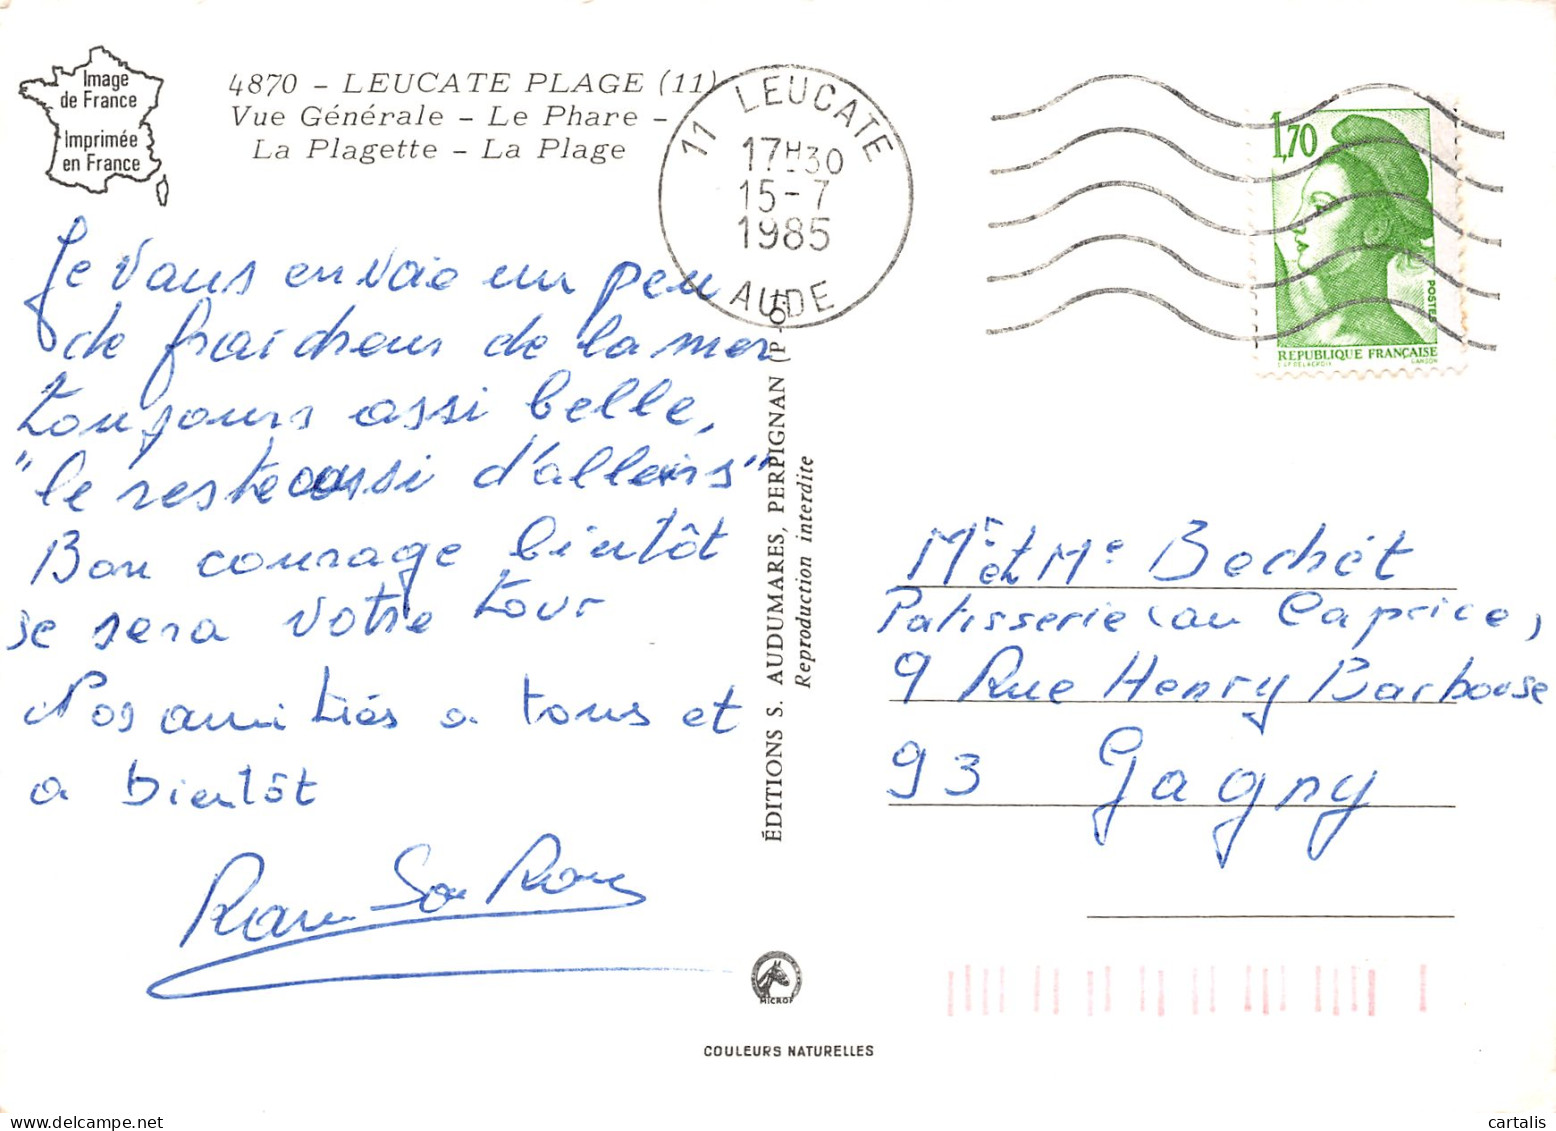 Image
de France
Imprimée
en France
4870 - LEUCATE PLAGE (11)
Vue Générale - Le Phare -
La Plagette - La Plage
11 LEUCATE
17H30
15-7
1985
AUDE
1,70
POSTES
REPUBLIQUE FRANÇAISE
Je vous envoie un peu
de fraicheur de la mer
toujours assi belle,
"le reste aussi d'alleirs"
Bon courage bientôt
se sera votre tour
Nos amitiés a tous et
a bientôt
ÉDITIONS S. AUDUMARES, PERPIGNAN (P.-O.)
Reproduction interdite
Mr et Me Bechét
Patisserie (au Caprice)
9 Rue Henry Barbouse
93 Gagny
MICROF
COULEURS NATURELLES
delcampe.net
cartalis